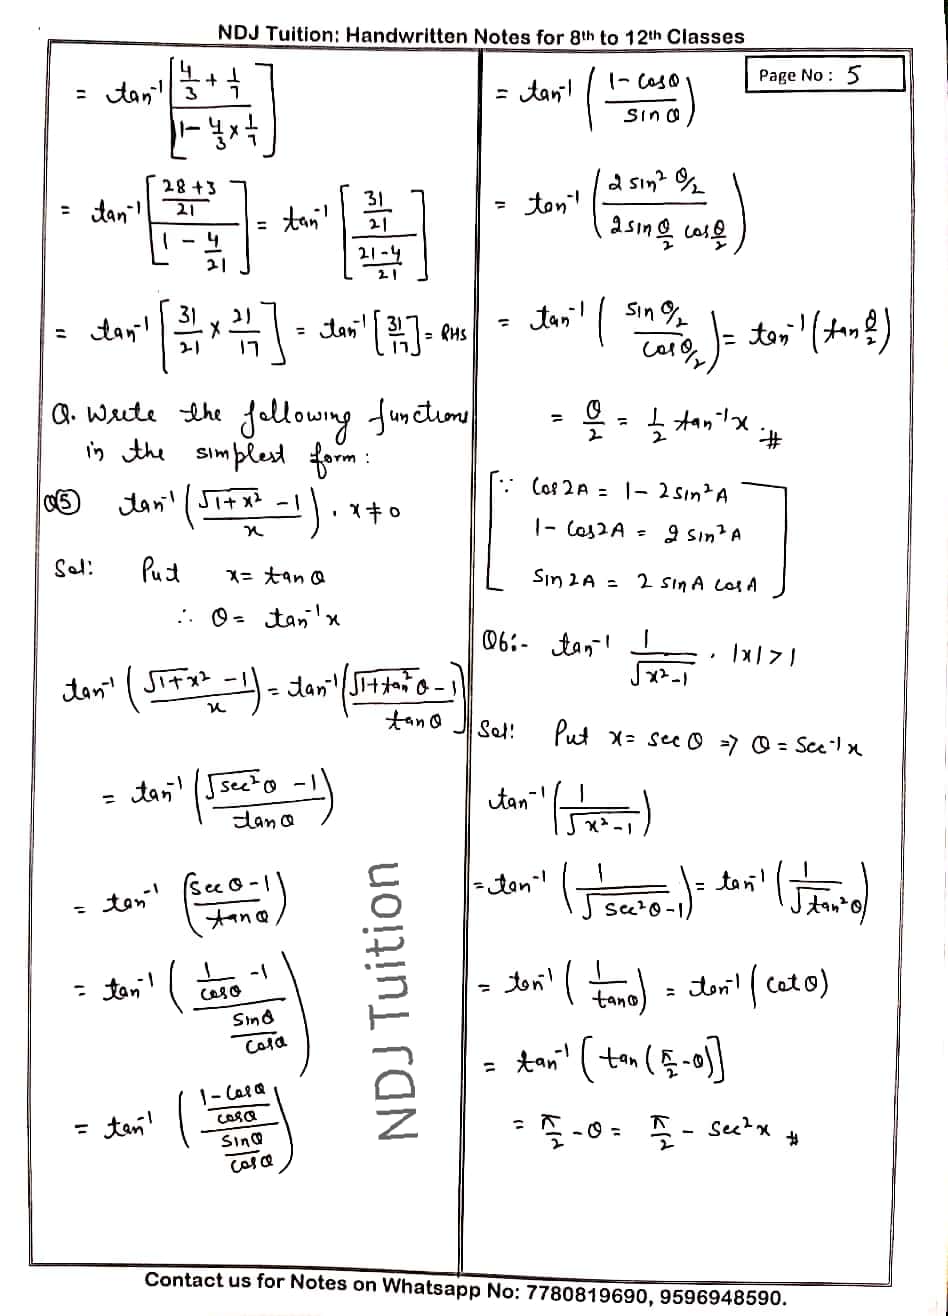 NDJ Tuition: Handwritten Notes for 8th to 12th Classes
= tan⁻¹ [(4/3 + 1/7) / (1 - 4/3 × 1/7)]
= tan⁻¹ [((28+3)/21) / (1 - 4/21)] = tan⁻¹ [(31/21) / ((21-4)/21)]
= tan⁻¹ [31/21 × 21/17] = tan⁻¹ [31/17] = RHS
Q. Write the following functions
in the simplest form:
Q5 tan⁻¹ ((√(1+x²) - 1) / x), x ≠ 0
Sol: Put x = tan θ
∴ θ = tan⁻¹x
tan⁻¹ ((√(1+x²) - 1) / x) = tan⁻¹ ((√(1+tan²θ) - 1) / tan θ)
= tan⁻¹ ((√(sec²θ) - 1) / tan θ)
= tan⁻¹ ((sec θ - 1) / tan θ)
= tan⁻¹ ((1/cos θ - 1) / (sin θ/cos θ))
= tan⁻¹ (((1 - cos θ)/cos θ) / (sin θ/cos θ))
NDJ Tuition
Page No : 5
= tan⁻¹ ((1 - cos θ) / sin θ)
= tan⁻¹ (2 sin² θ/2 / (2 sin θ/2 cos θ/2))
= tan⁻¹ (sin θ/2 / cos θ/2) = tan⁻¹ (tan θ/2)
= θ/2 = 1/2 tan⁻¹x #
[∵ cos 2A = 1 - 2 sin²A
1 - cos 2A = 2 sin²A
sin 2A = 2 sin A cos A]
Q6:- tan⁻¹ 1/√(x²-1), |x| > 1
Sol: Put x = sec θ ⇒ θ = sec⁻¹x
tan⁻¹ (1/√(x²-1))
= tan⁻¹ (1/√(sec²θ-1)) = tan⁻¹ (1/√(tan²θ))
= tan⁻¹ (1/tan θ) = tan⁻¹ (cot θ)
= tan⁻¹ [tan (π/2 - θ)]
= π/2 - θ = π/2 - sec²x #
Contact us for Notes on Whatsapp No: 7780819690, 9596948590.